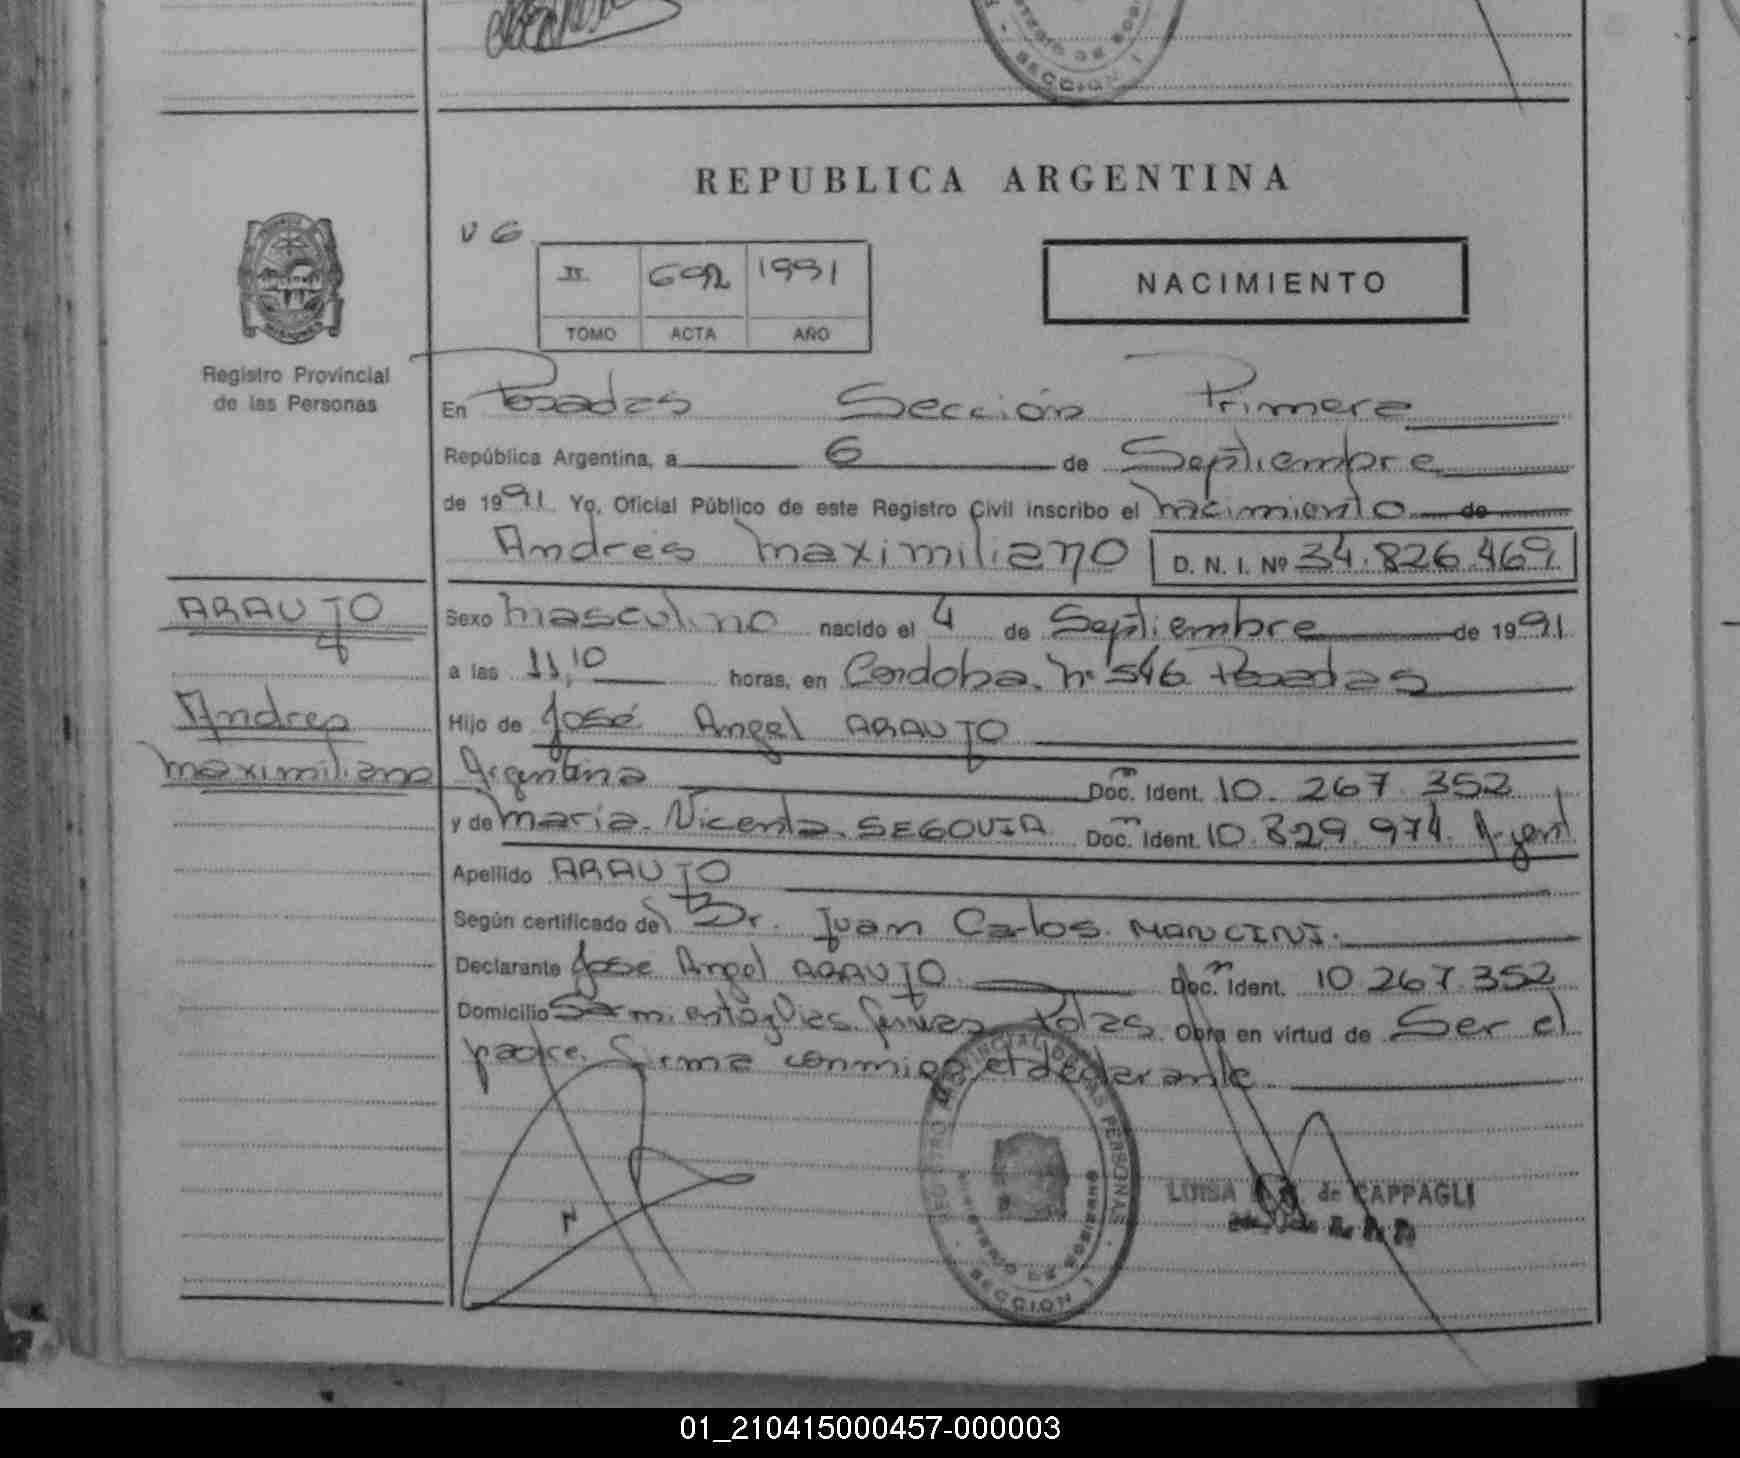 SECCION 1
REPUBLICA ARGENTINA
V 6
II 692 1991
TOMO ACTA AÑO
NACIMIENTO
Registro Provincial
de las Personas
En Posadas Sección Primera
República Argentina, a 6 de Septiembre
de 1991 Yo, Oficial Público de este Registro Civil inscribo el nacimiento de
Andrés Maximiliano D. N. I. Nº 34.826.469
ARAUJO
Andres
Maximiliano
Sexo masculino nacido el 4 de Septiembre de 1991
a las 11,10 horas, en Cordoba. Nº 546 Posadas
Hijo de José Angel ARAUJO
Argentina Doc. Ident. 10.267.352
y de María Nicenta SEGOVIA Doc. Ident. 10.829.974. Argent
Apellido ARAUJO
Según certificado del Dr. Juan Carlos MANCINI.
Declarante Jose Angel ARAUJO Doc. Ident. 10.267.352
Domicilio Obra en virtud de Ser el
padre. Firma conmigo el declarante
REGISTRO PROVINCIAL DE LAS PERSONAS
MINISTERIO DE GOBIERNO
SECCION 1
LUISA de CAPPAGLI
01_210415000457-000003